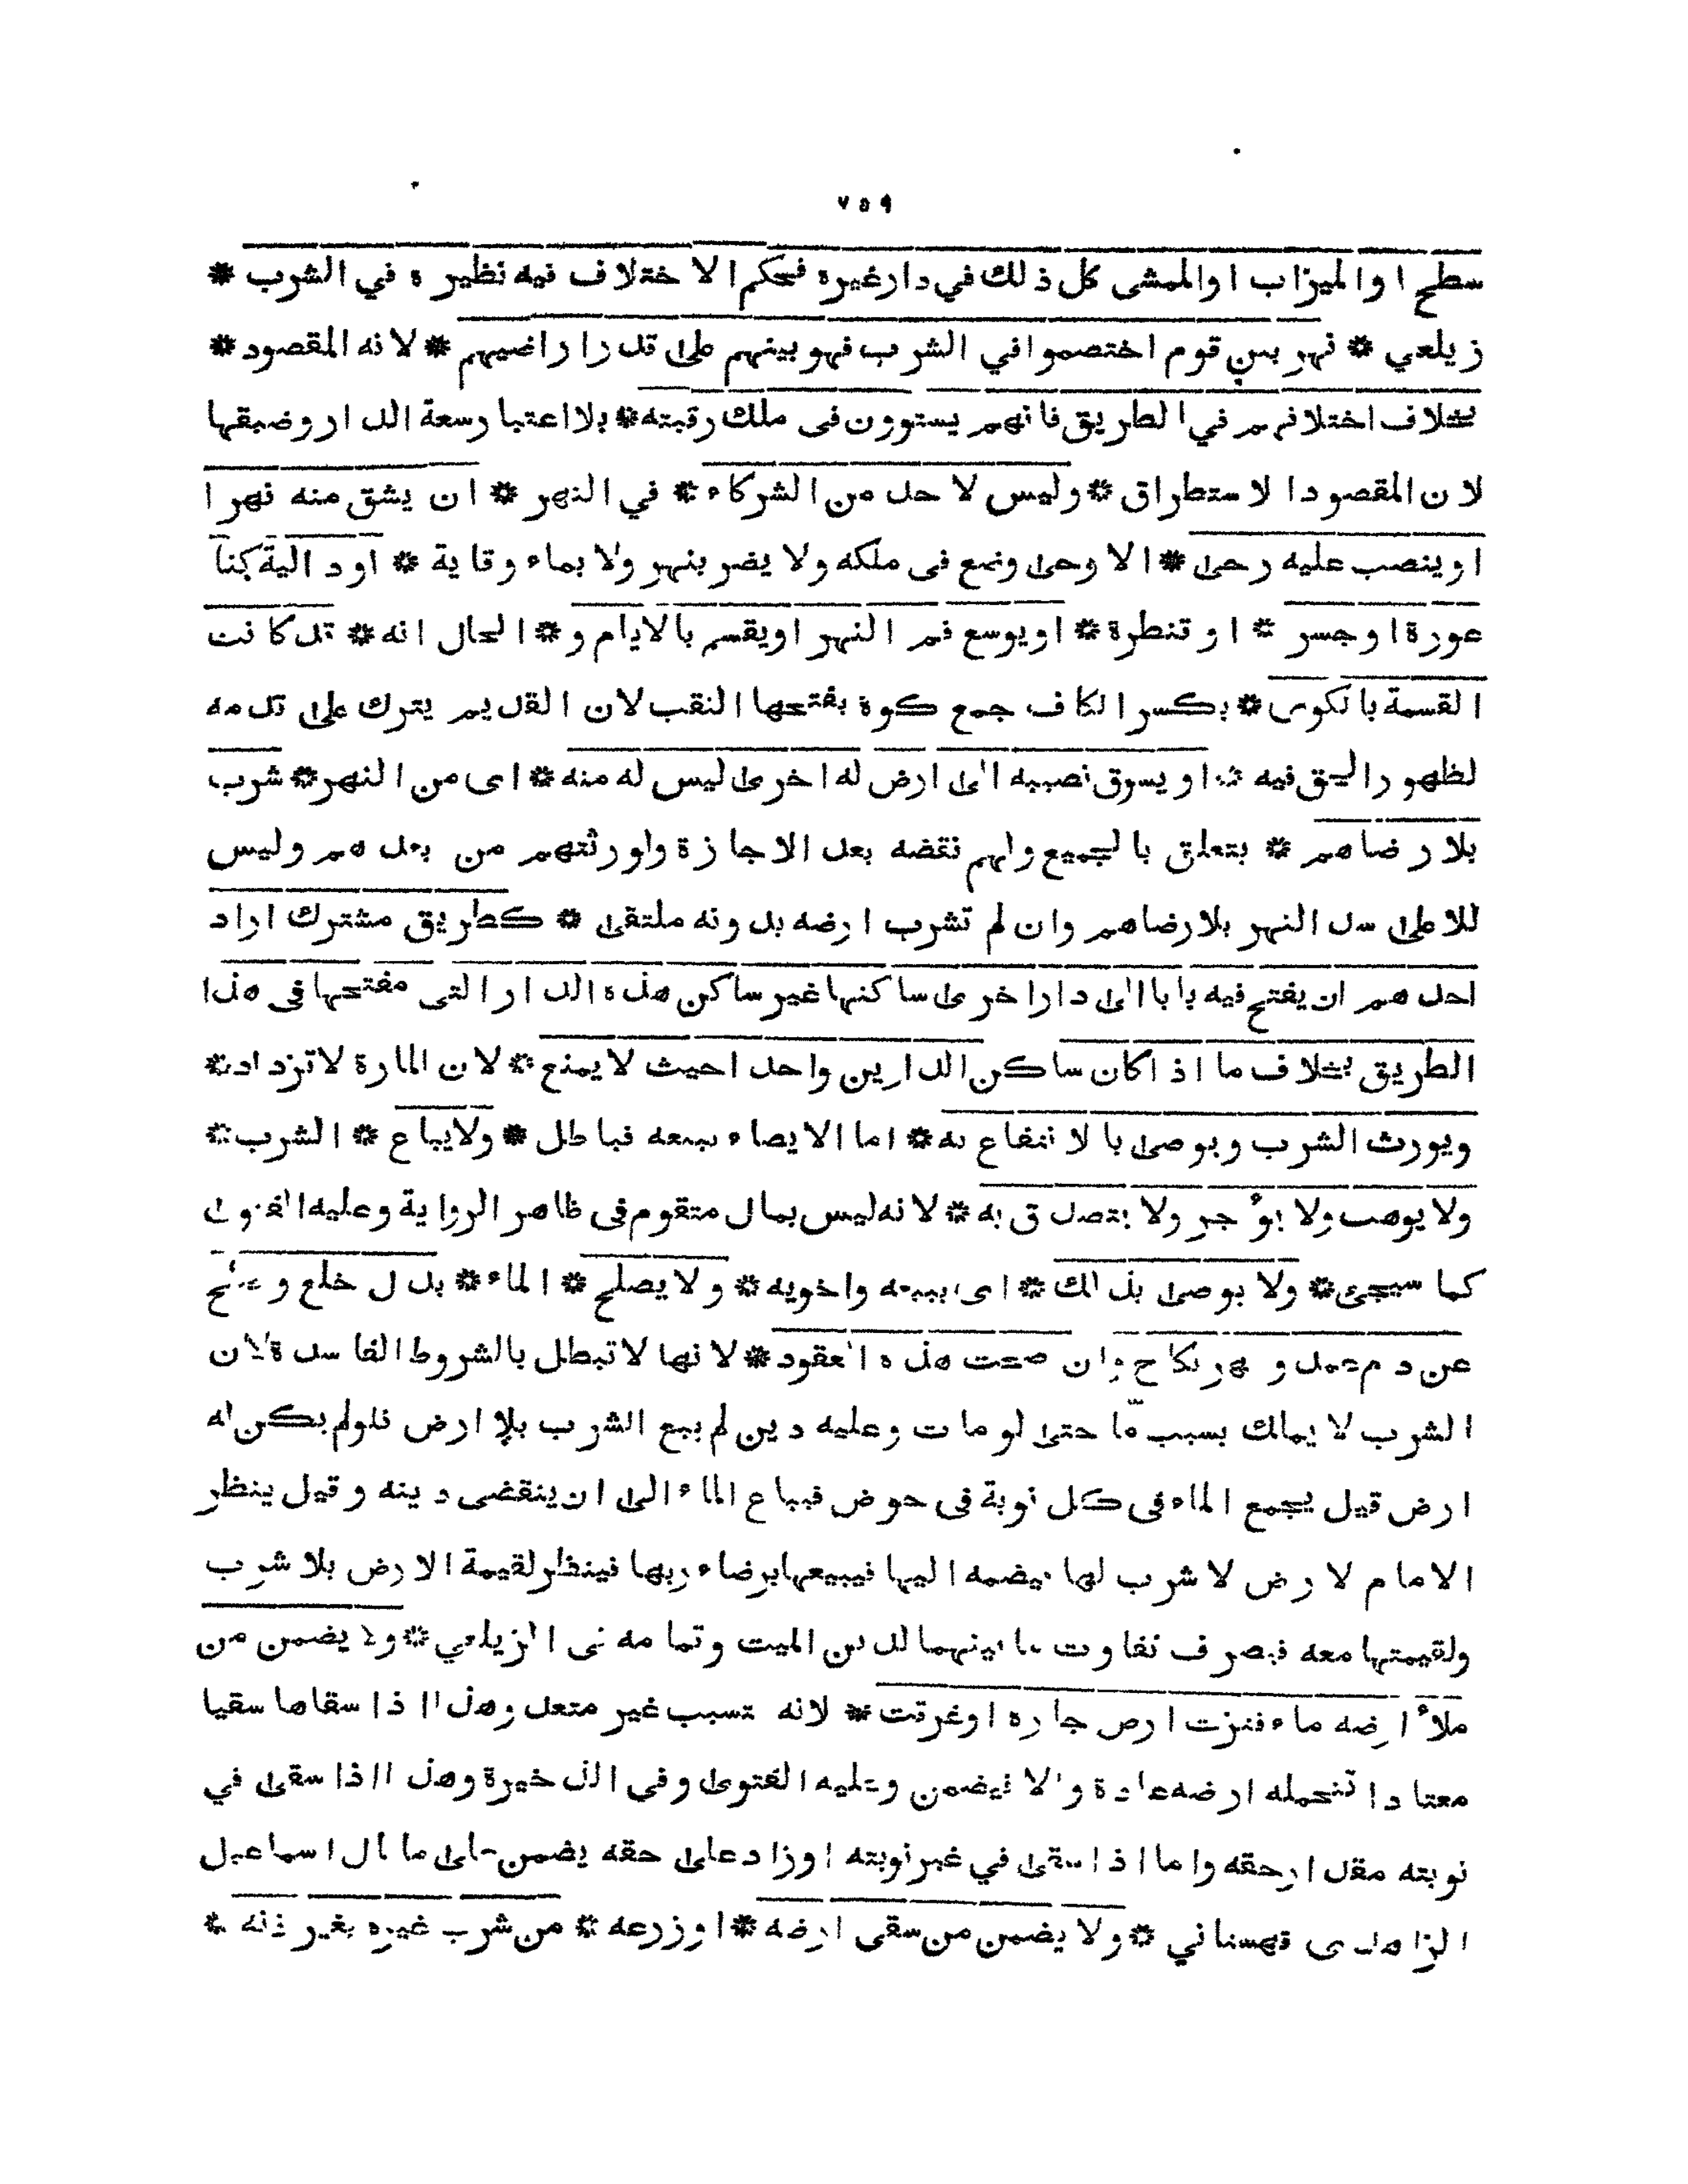 ٧٥٩
سطح او الميزاب او الممشى كل ذلك في دار غيره فحكم الاختلاف فيه نظيره في الشرب *
زيلعي * نهر بين قوم اختصموا في الشرب فهو بينهم على قدر اراضيهم * لانه المقصود *
بخلاف اختلافهم في الطريق فانهم يستوون فى ملك رقبته * بلا اعتبار سعة الدار وضيقها
لان المقصود الاستطراق * وليس لاحد من الشركاء * في النهر * ان يشق منه نهرا
او ينصب عليه رحى * الا وحى وضع فى ملكه ولا يضر بنهر ولا بماء وقاية * او دالية كنا
عورة او جسر * او قنطرة * او يوسع فم النهر او يقسم بالايام و * الحال انه * قد كانت
القسمة بالكوى * بكسر الكاف جمع كوة بفتحها النقب لان القديم يترك على قدمه
لظهور الحق فيه * او يسوق نصيبه الى ارض له اخرى ليس له منه * اى من النهر * شرب
بلا رضاهم * يتعلق بالجميع ولهم نقضه بعد الاجازة ولورثتهم من بعدهم وليس
للاعلى سد النهر بلا رضاهم وان لم تشرب ارضه بدونه ملتقى * كطريق مشترك اراد
احدهم ان يفتح فيه بابا الى دار اخرى ساكنها غير ساكن هذه الدار التى مفتحها فى هذا
الطريق بخلاف ما اذا كان ساكن الدارين واحدا حيث لا يمنع * لان المارة لا تزداد *
ويورث الشرب ويوصى بالانتفاع به * اما الايصاء ببيعه فباطل * ولا يباع * الشرب *
ولا يوهب ولا يؤجر ولا يتصدق به * لانه ليس بمال متقوم فى ظاهر الرواية وعليه الفتوى
كما سيجئ * ولا يوصى بذلك * اى ببيعه واخويه * ولا يصلح * الماء * بدل خلع وصلح
عن دم عمد ومهر نكاح وان صحت هذه العقود * لانها لا تبطل بالشروط الفاسدة لان
الشرب لا يملك بسبب ما حتى لو مات وعليه دين لم يبع الشرب بلا ارض فلو لم يكن له
ارض قيل يجمع الماء فى كل نوبة فى حوض فيباع الماء الى ان ينقضى دينه وقيل ينظر
الامام لارض لا شرب لها فيضمه اليها فيبيعها برضاء ربها فينظر لقيمة الارض بلا شرب
ولقيمتها معه فيصرف تفاوت ما بينهما لدين الميت وتمامه فى الزيلعي * ولا يضمن من
ملأ ارضه ماء فنزت ارض جاره او غرقت * لانه تسبب غير متعد وهذا اذا سقاها سقيا
معتادا تتحمله ارضه عادة والا فيضمن وعليه الفتوى وفى الذخيرة وهذا اذا سقى في
نوبته مقدار حقه واما اذا سقى في غير نوبته او زاد على حقه يضمن على ما قال اسماعيل
الزاهدى قهستاني * ولا يضمن من سقى ارضه * او زرعه * من شرب غيره بغير ذنه *